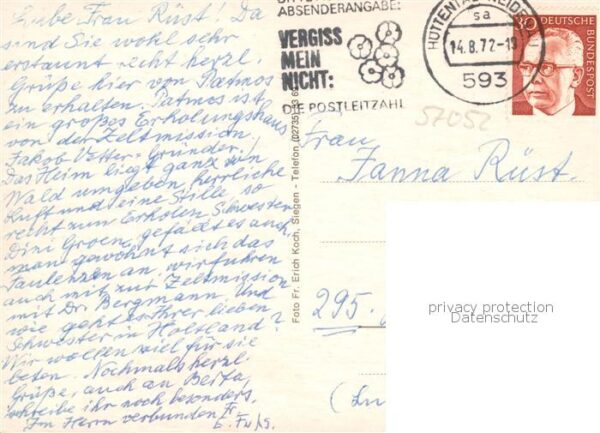 Liebe Frau Rüst! Da
sind Sie wohl sehr
erstaunt recht herzl.
Grüße hier von Patmos
zu erhalten. Patmos ist
ein großes Erholungshaus
von der Zeltmission.
Jakob Vetter = Gründer!
Das Heim liegt ganz v.
Wald umgeben, herrliche
Luft und eine Stille, so
recht zum Erholen. Schwester
Dini Groen, gefällt es auch,
man gewöhnt sich das
Faulenzen an, wir fuhren
auch mit zur Zeltmission
mit Dr. Bergmann. Und
wie geht es Ihrer lieben
Schwester in Holtland?
Wir wollen viel für sie
beten. Nochmals herzl.
Grüße, auch an Berta,
schreibe ihr noch besonders.
Im Herrn verbunden
ABSENDERANGABE:
VERGISS
MEIN
NICHT:
DIE POSTLEITZAHL
sa
14.8.72-19
593
30
DEUTSCHE
BUNDESPOST
57052
Foto Fr. Erich Koch, Siegen - Telefon (02735)
Frau
Janna Rüst.
295
privacy protection
Datenschutz